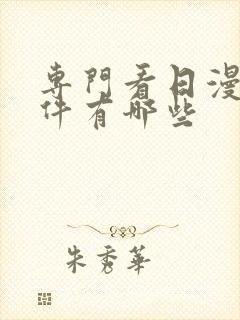 專門看日漫
件有哪些
朱秀華